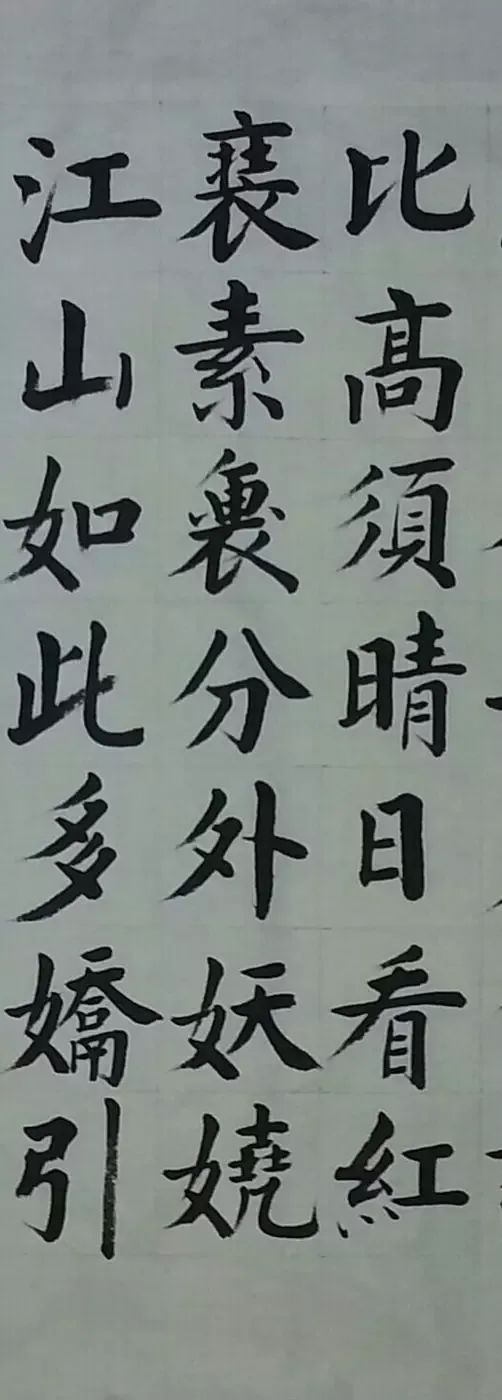 比高須晴日看紅
裝素裹分外妖嬈
江山如此多嬌引